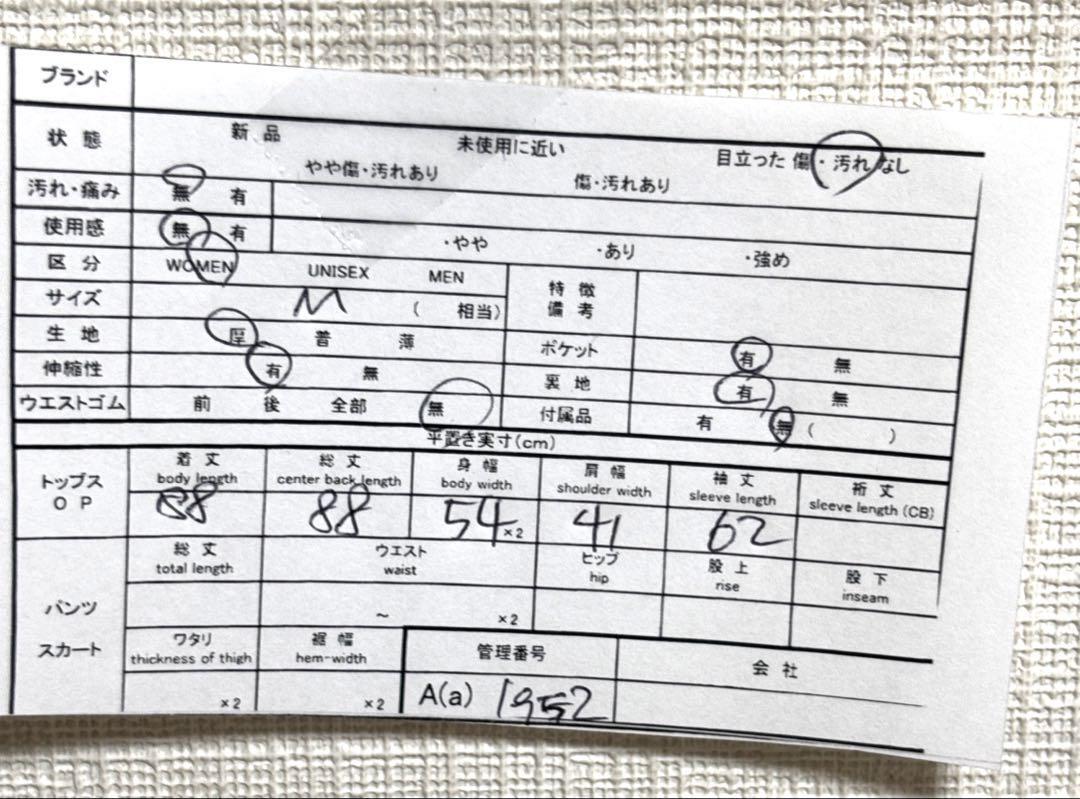 ブランド
状態 新品 未使用に近い 目立った傷・汚れなし
やや傷・汚れあり 傷・汚れあり
汚れ・痛み 無 有
使用感 無 有 ・やや ・あり ・強め
区分 WOMEN UNISEX MEN 特徴
備考
サイズ M ( 相当)
生地 厚 普 薄 ポケット 有 無
伸縮性 有 無 裏地 有 無
ウエストゴム 前 後 全部 無 付属品 有 無 ( )
平置き実寸(cm)
トップス
OP
着丈 総丈 身幅 肩幅 袖丈 裄丈
body length center back length body width shoulder width sleeve length sleeve length (CB)
88 88 54 ×2 41 62
パンツ
スカート
総丈 ウエスト ヒップ 股上 股下
total length waist hip rise inseam
~ ×2
ワタリ 裾幅 管理番号 会社
thickness of thigh hem-width
×2 ×2 A(a) 1952